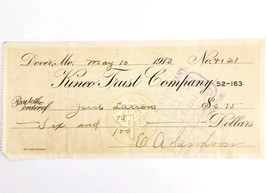 Dover, Mo. May 10 1913 No. 4121
Kinco Trust Company 52-163
Pay to the order of Jacob Larson $6.75
Six and 75/100 Dollars
E A Sampson